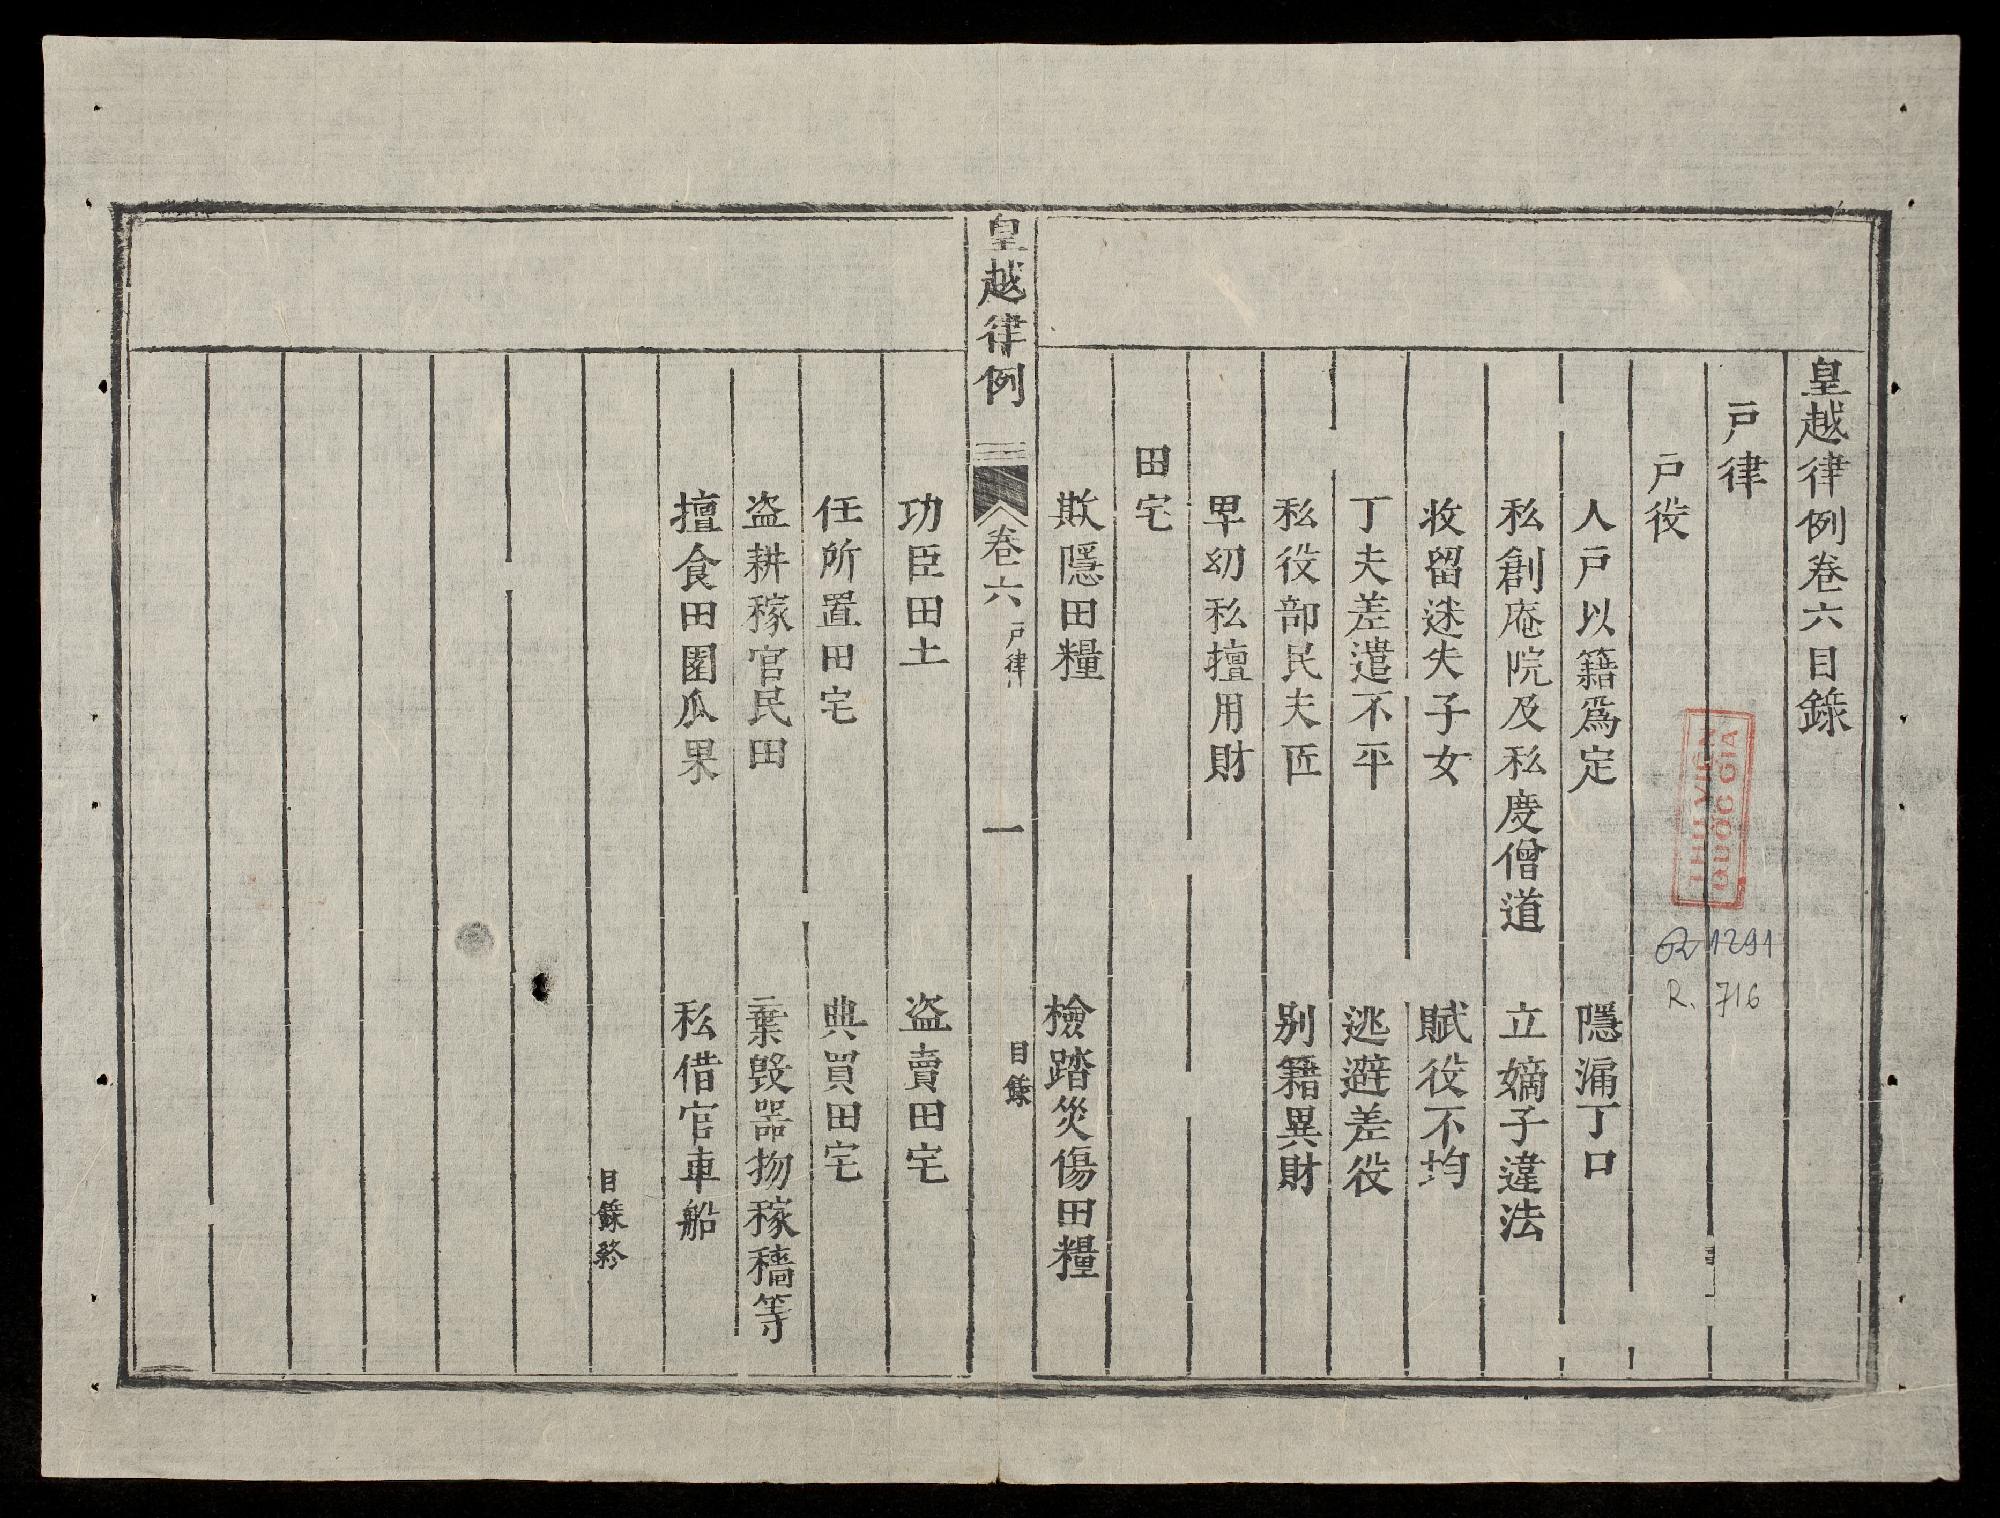 皇越律例卷六目錄
戶律
戶役
人戶以籍爲定　隱漏丁口
私創庵院及私度僧道　立嫡子違法
收留迷失子女　賦役不均
丁夫差遣不平　逃避差役
私役部民夫匠　別籍異財
卑幼私擅用財
田宅
欺隱田糧　檢踏災傷田糧
皇越律例　卷六　戶律　一　目錄
功臣田土　盜賣田宅
任所置田宅　典買田宅
盜耕種官民田　棄毀器物稼穡等
擅食田園瓜果　私借官車船
目錄終
THƯ VIỆN
QUỐC GIA
1291
R. 716